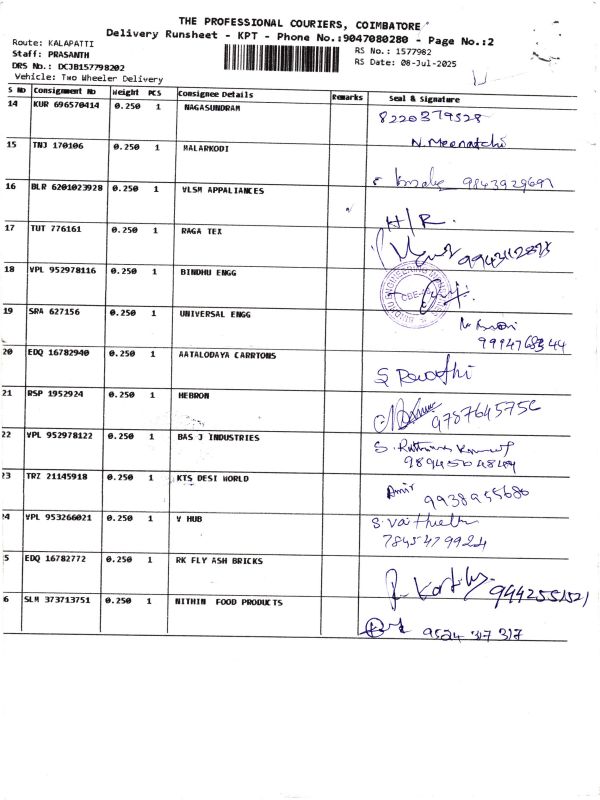 THE PROFESSIONAL COURIERS, COIMBATORE
Delivery Runsheet - KPT - Phone No.:9047080280 - Page No.:2
Route: KALAPATTI
Staff: PRASANTH
DRS No.: DCJB157798202
Vehicle: Two Wheeler Delivery
RS No.: 1577982
RS Date: 08-Jul-2025
S No Consignment No Weight PCS Consignee Details Remarks Seal & Signature
14 KUR 696570414 0.250 1 NAGASUNDRAM 8220379528
N. Meenatchi
15 TNJ 170106 0.250 1 MALARKODI
9843929691
16 BLR 6201023928 0.250 1 VLSM APPALIANCES
H/R.
17 TUT 776161 0.250 1 RAGA TEX
18 VPL 952978116 0.250 1 BINDHU ENGG
19 SRA 627156 0.250 1 UNIVERSAL ENGG
20 EDQ 16782940 0.250 1 AATALODAYA CARRTONS
S Revathi
21 RSP 1952924 0.250 1 HEBRON
22 VPL 952978122 0.250 1 BAS J INDUSTRIES
23 TRZ 21145918 0.250 1 KTS DESI WORLD
Amir 9938955686
24 VPL 953266021 0.250 1 V HUB
7845479924
5 EDQ 16782772 0.250 1 RK FLY ASH BRICKS
6 SLM 373713751 0.250 1 NITHIN FOOD PRODUCTS
9524 317 317